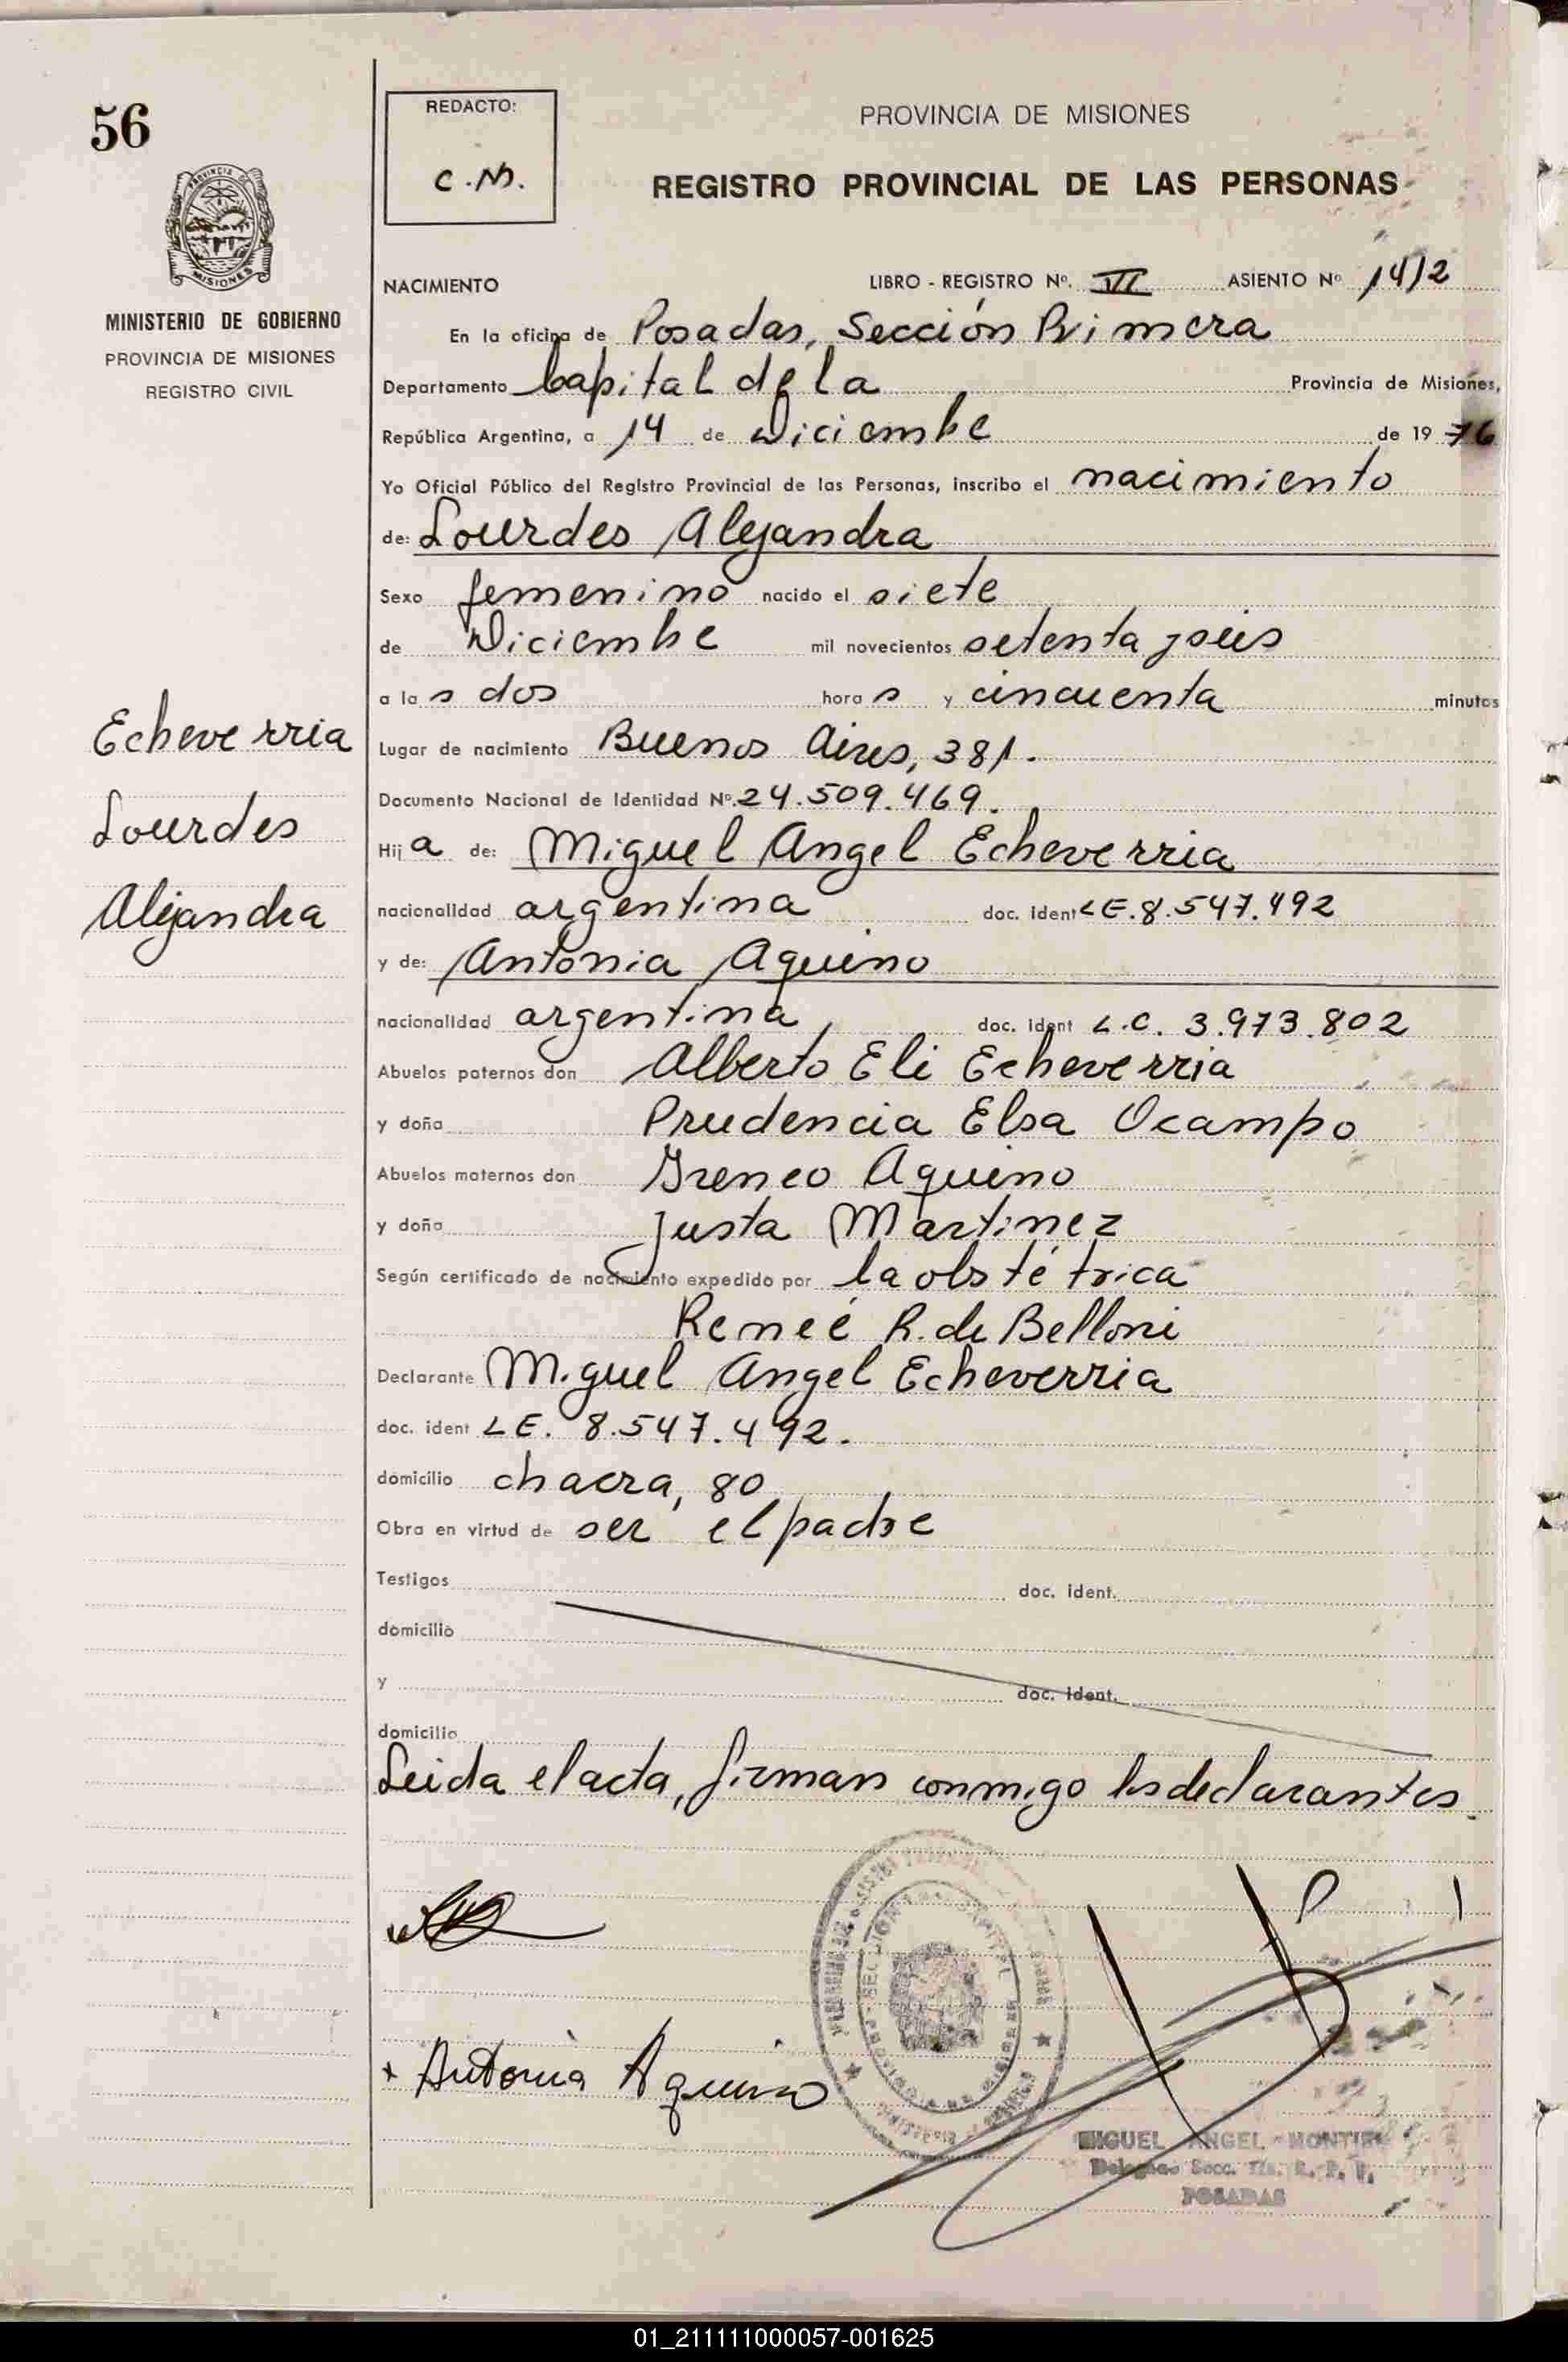 56
REDACTO:
C.M.
PROVINCIA DE MISIONES
REGISTRO PROVINCIAL DE LAS PERSONAS
MISIONES
MINISTERIO DE GOBIERNO
PROVINCIA DE MISIONES
REGISTRO CIVIL
NACIMIENTO LIBRO - REGISTRO Nº. VI ASIENTO Nº 1412
En la oficina de Posadas, Sección Primera
Departamento Capital de la Provincia de Misiones,
República Argentina, a 14 de Diciembre de 19 76
Yo Oficial Público del Registro Provincial de las Personas, inscribo el nacimiento
de: Lourdes Alejandra
Sexo femenino nacido el siete
de Diciembre mil novecientos setenta y seis
a la s dos hora s y cincuenta minutos
Echeverria
Lourdes
Alejandra
Lugar de nacimiento Buenos Aires, 381.
Documento Nacional de Identidad Nº. 24.509.469.
Hij a de: Miguel Angel Echeverria
nacionalidad argentina doc. ident LE. 8.547.492
y de: Antonia Aquino
nacionalidad argentina, doc. ident L.C. 3.973.802
Abuelos paternos don Alberto Eli Echeverria
y doña Prudencia Elsa Ocampo
Abuelos maternos don Ireneo Aquino
y doña Justa Martinez
Según certificado de nacimiento expedido por la obstétrica
Reneé R. de Belloni
Declarante Miguel Angel Echeverria
doc. ident LE. 8.547.492.
domicilio chacra, 80
Obra en virtud de ser el padre
Testigos doc. ident.
domicilio
y doc. ident.
domicilio
Leida el acta, firman conmigo los declarantes.
+ Antonia Aquino
MIGUEL ANGEL MONTIEL
POSADAS
01_211111000057-001625